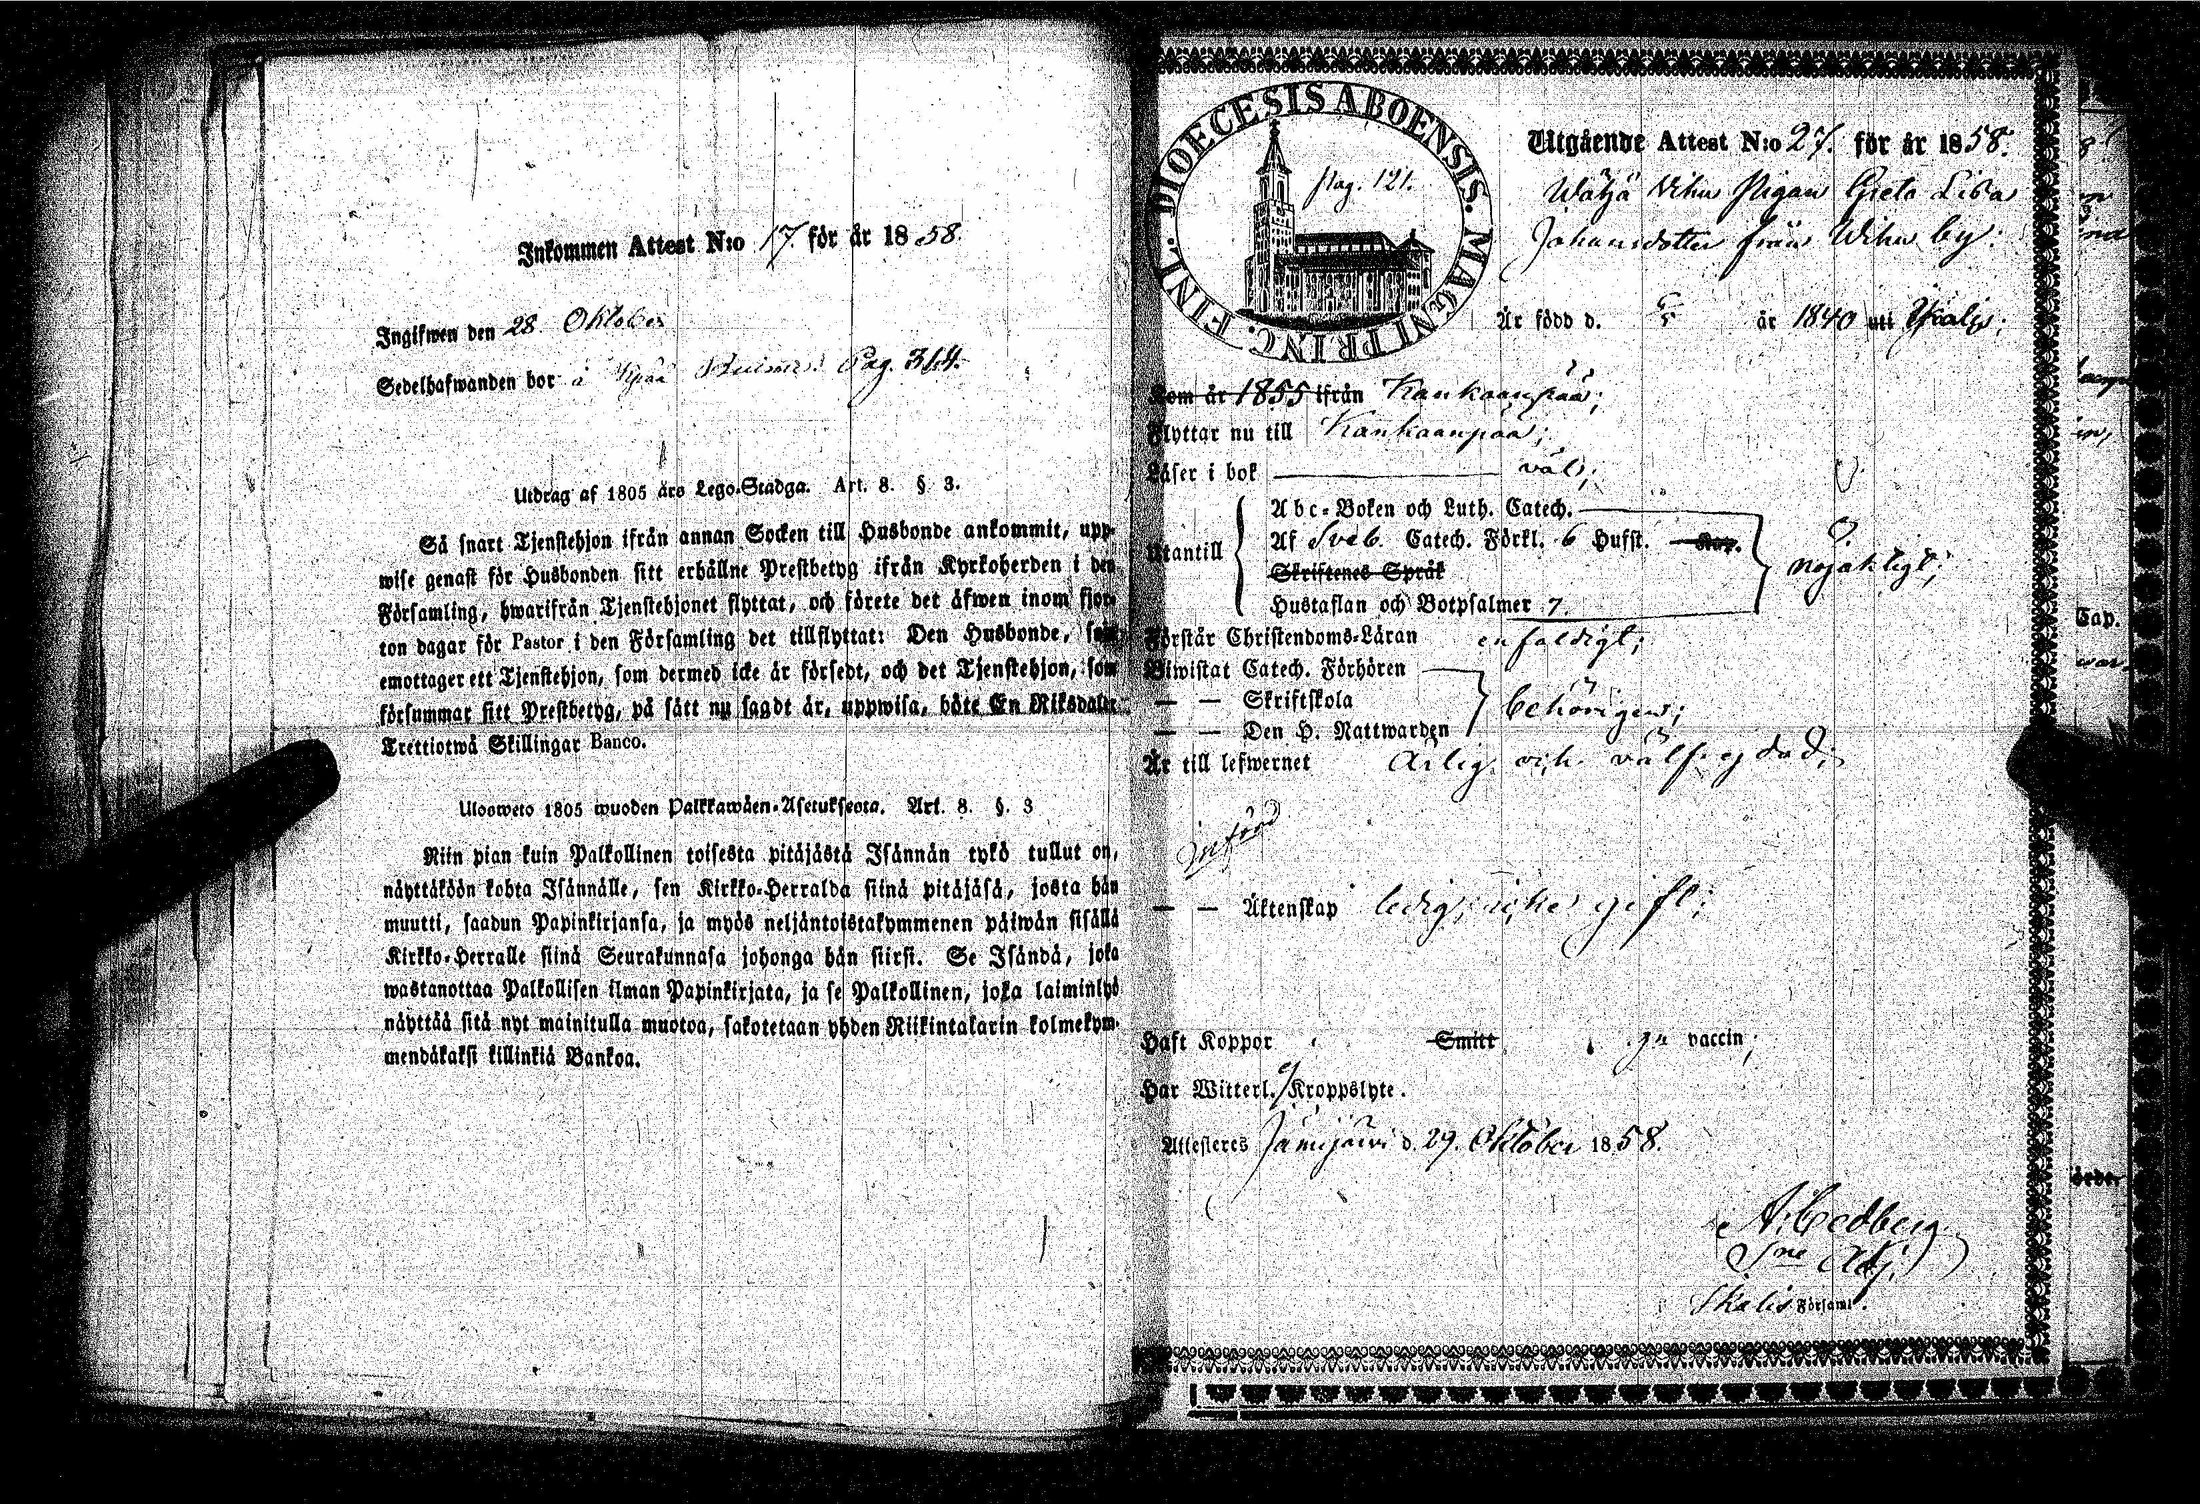 Inkommen Attest N:o 17. för år 1858.
Ingifwen den 28 Oktober
Sedelhafwanden bor å Pag. 314.
Utdrag af 1805 års Lego-Stadga. Art. 8. § 3.
Så snart Tjenstehjon ifrån annan Socken till Husbonde ankommit, upp-
wise genast för Husbonden sitt erhållne Prestbetyg ifrån Kyrkoherden i den
Församling, hwarifrån Tjenstehjonet flyttat, och förete det äfwen inom fjor-
ton dagar för Pastor i den Församling det tillflyttat: Den Husbonde, som
emottager ett Tjenstehjon, som dermed icke är försedt, och det Tjenstehjon, som
försummar sitt Prestbetyg, på sätt nu sagdt är, uppwisa, böte En Riksdaler
Trettiotwå Skillingar Banco.
Ulosweto 1805 wuoden Palkkawäen-Asetuksesta. Art. 8. §. 3
Niin pian kuin Palkollinen toisesta pitäjästä Isännän tykö tullut on,
näyttäköön kohta Isännälle, sen Kirkko-Herralda siinä pitäjäsä, josta hän
muutti, saadun Papinkirjansa, ja myös neljäntoistakymmenen päiwän sisällä
Kirkko-Herralle siinä Seurakunnasa johonga hän siirsi. Se Isändä, joka
wastanottaa Palkollisen ilman Papinkirjata, ja se Palkollinen, joka laiminlyö
näyttää sitä nyt mainitulla muotoa, sakotetaan yhden Riikintalarin kolmekym-
mendäkaksi killinkiä Bankoa.
DIOECESIS ABOENSIS. MAGNI PRINC. FINL.
pag. 121.
Utgående Attest N:o 27. för år 1858.
Wähä Wihu Pigan Greta Lisa
Johansdotter från Wihu by.
Är född d. 5/5 år 1840 uti
Kom år 1855 ifrån Kankaanpää;
Flyttar nu till Kankaanpää;
Läser i bok väl;
Utantill
Abc-Boken och Luth. Catech.
Af Sveb. Catech. Förkl. 6 Hufst. Kap.
Skriftenes Språk
Hustaflan och Botpsalmer 7.
nöjaktigt;
Förstår Christendoms-Läran enfaldigt;
Biwistat Catech. Förhören
— — Skriftskola
— — Den H. Nattwarden
behörigen;
Är till lefwernet Ärlig och välfrejdad;
införd
— — Äktenskap ledig, icke gift;
Haft Koppor Smitt gn vaccin;
Har Witterl. ej Kroppslyte.
Attesteres Jämijärvi d. 29. Oktober 1858.
A. Cedberg
Adj.
Ikalis Församl.